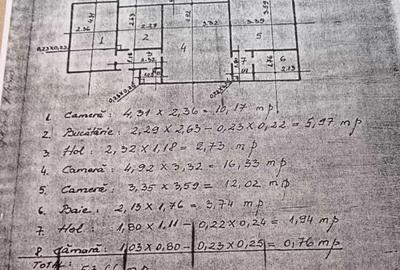 4,31
2.36
1
0,23x0,22
2.63
2.29
2
3
2.32
1.18
4,92
3.32
4
3.59
3.39
5
7
1.11
1.76
6
2.13
1. Cameră: 4,31 x 2,36 = 10,17 mp
2. Bucătărie: 2,29 x 2,63 - 0,23 x 0,22 = 5,97 mp
3. Hol: 2,32 x 1,18 = 2,73 mp
4. Cameră: 4,92 x 3,32 = 16,33 mp
5. Cameră: 3,35 x 3,59 = 12,02 mp
6. Baie: 2,13 x 1,76 = 3,74 mp
7. Hol: 1,80 x 1,11 - 0,22 x 0,24 = 1,94 mp
8. Cămară: 1,03 x 0,80 - 0,23 x 0,25 = 0,76 mp
TOTAL
mp